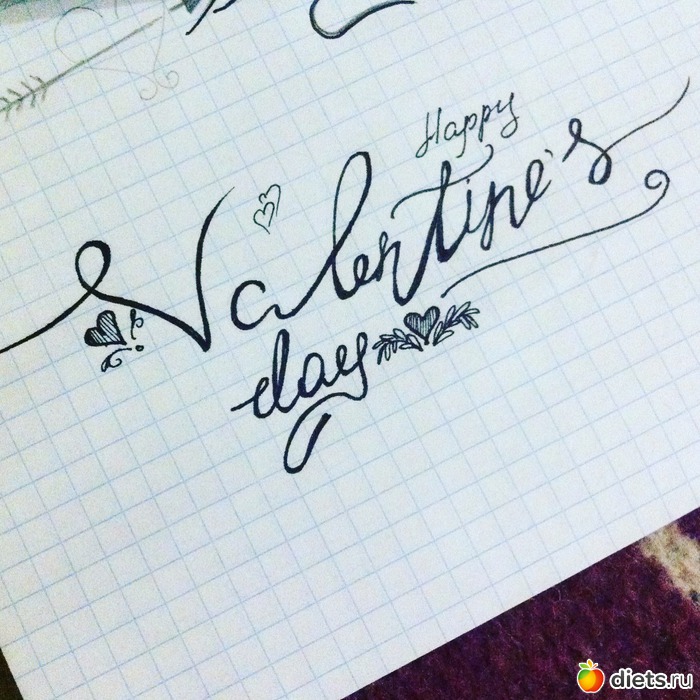 Happy
Valentine's
day
diets.ru